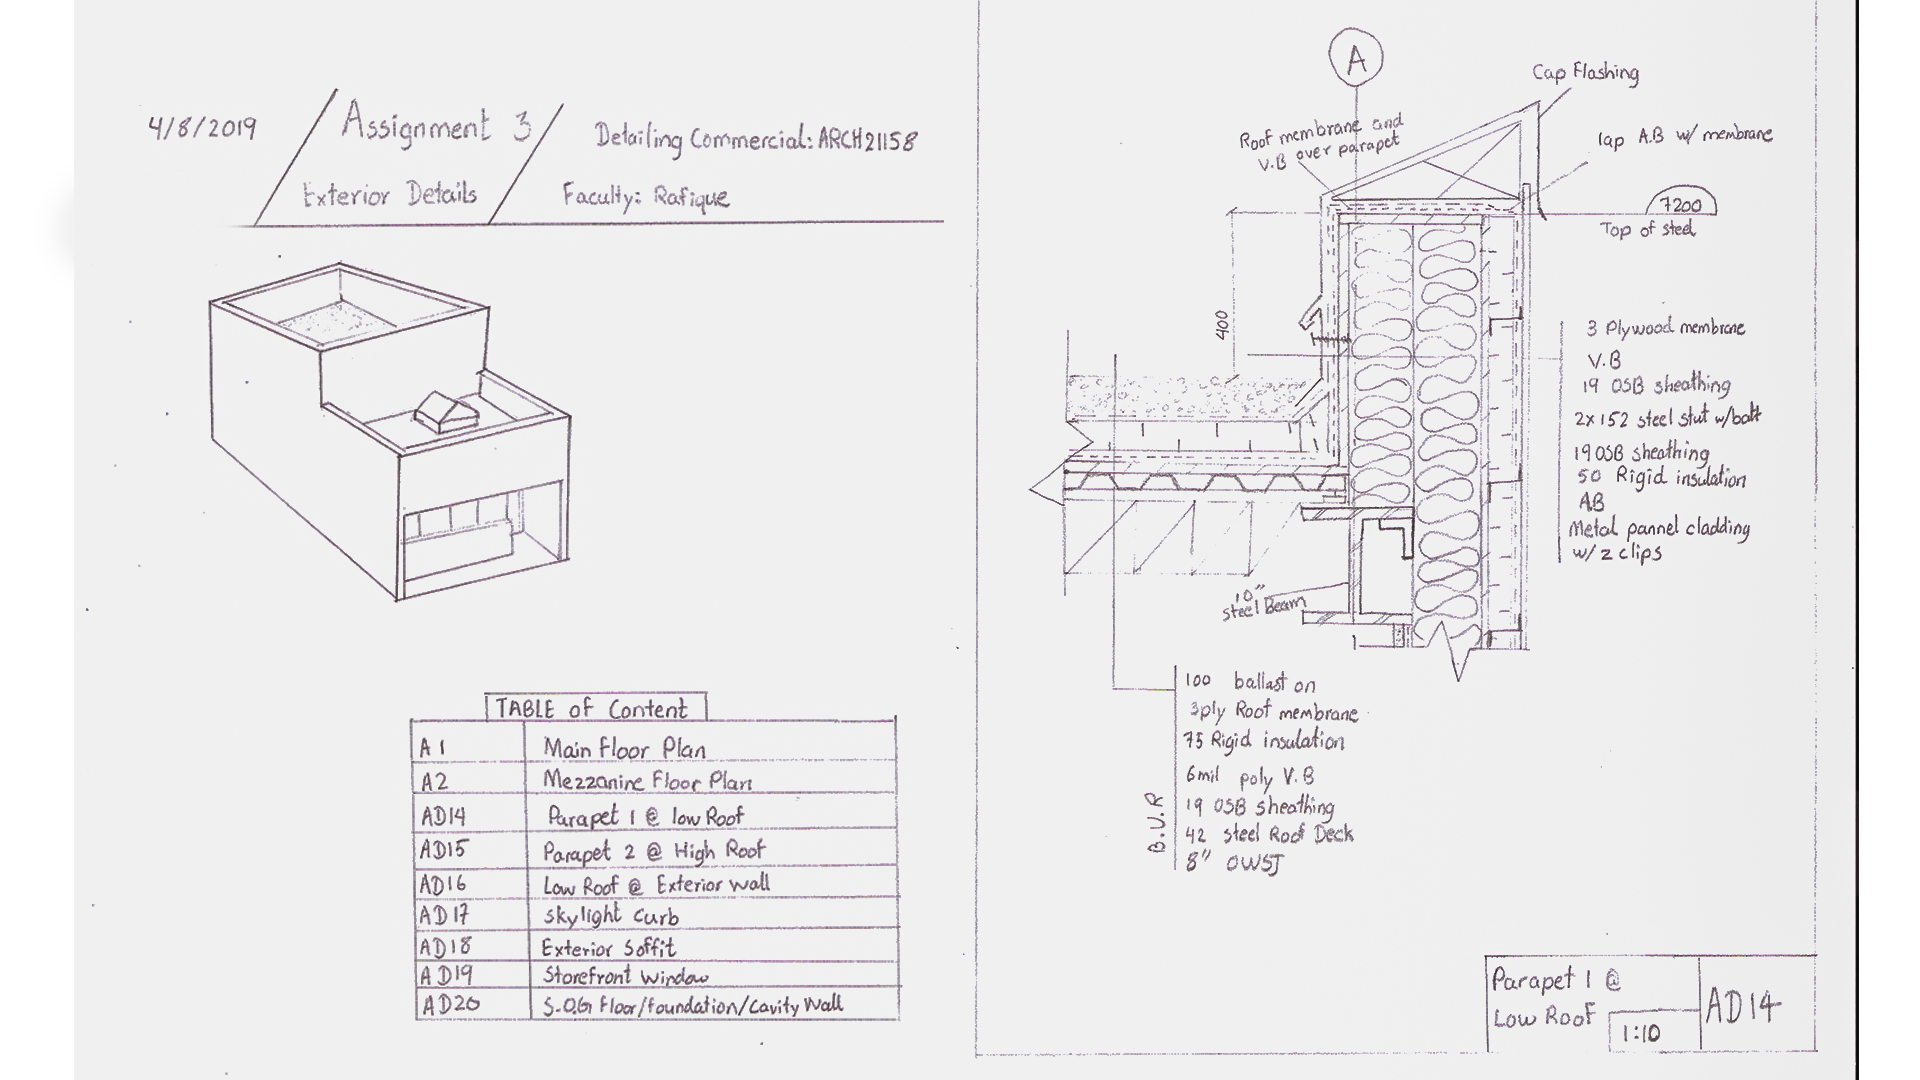 4/8/2019
Assignment 3
Detailing Commercial: ARCH21158
Exterior Details
Faculty: Rafique
TABLE of Content
A1 Main Floor Plan
A2 Mezzanine Floor Plan
AD14 Parapet 1 @ low Roof
AD15 Parapet 2 @ High Roof
AD16 Low Roof @ Exterior wall
AD17 skylight curb
AD18 Exterior Soffit
AD19 Storefront window
AD20 S.O.G Floor/foundation/Cavity Wall
A
Cap Flashing
Roof membrane and
V.B over parapet
lap A.B w/ membrane
7200
Top of steel
400
3 Plywood membrane
V.B
19 OSB sheathing
2x152 steel stut w/batt
19 OSB sheathing
50 Rigid insulation
AB
Metal pannel cladding
w/ z clips
10"
steel Beam
100 ballast on
3ply Roof membrane
75 Rigid insulation
6mil poly V.B
19 OSB sheathing
42 steel Roof Deck
8" OWSJ
B.U.R
Parapet 1 @
Low Roof
1:10
AD14